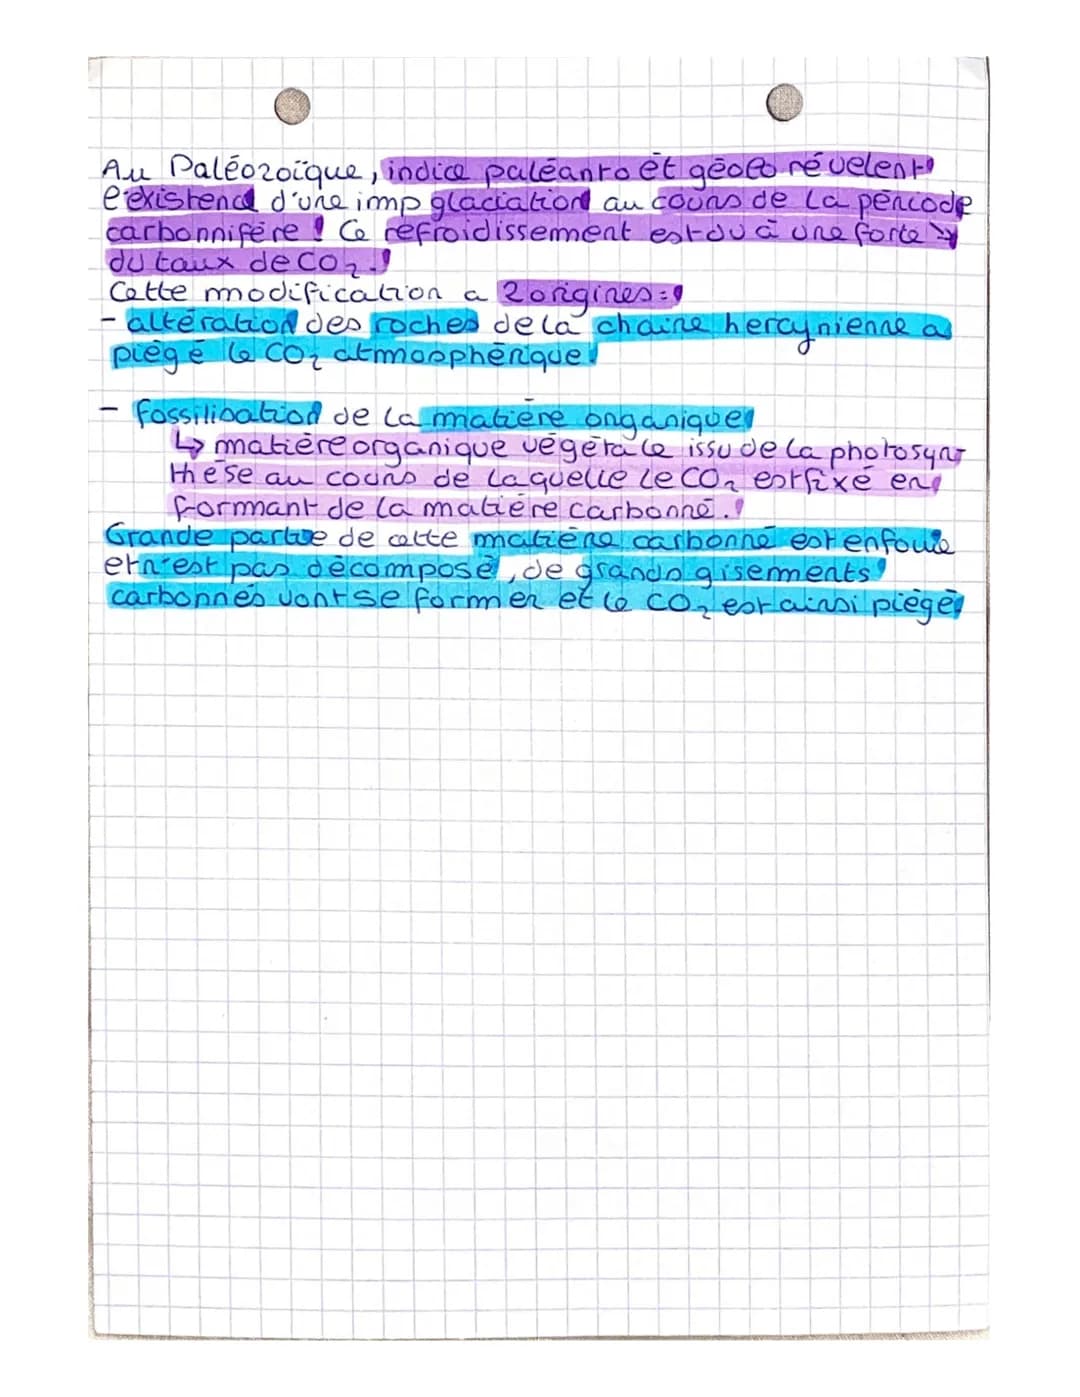 Au Paléozoïque, indice paléanto et géolo révelent
l'existence d'une imp glaciation au cours de la période
carbonnifère ! Ce refroidissement est du à une forte ↘
du taux de CO₂.
Cette modification a 2 origines :
- altération des roches de la chaine hercynienne a
piégé le CO₂ atmosphérique
- fossilisation de la matière organique
↳ matière organique végétale issu de la photosyn-
thèse au cours de laquelle le CO₂ est fixé en
formant de la matière carbonné.
Grande partie de cette matière carbonné est enfouie
et n'est pas décomposé, de grands gisements
carbonnés vont se former et le CO₂ est ainsi piégé